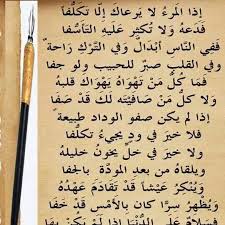 إذا المَرءُ لا يَرعاكَ إلّا تَكلُّفا
فَدَعهُ وَلا تُكثِر عَلَيهِ التَأسُّفا
فَفِي النَّاسِ أبْدَالٌ وفي التَّرْكِ راحةٌ
وفي القلبِ صبرٌ للحبيب ولو جفا
فمَا كلُّ مَنْ تَهْوَاهُ يَهْوَاكَ قلبهُ
وَلا كلُّ مَنْ صَافيْتَه لَكَ قَدْ صَفَا
إذا لم يكن صفو الوداد طبيعة ً
فلا خيرَ في ودٍ يجيءُ تكلُّفا
ولا خيرَ في خلٍّ يخونُ خليلهُ
ويلقاهُ من بعدِ المودَّة ِ بالجفا
وَيُنْكِرُ عَيْشاً قَدْ تَقَادَمَ عَهْدُهُ
وَيُظْهِرُ سِرًّا كان بالأَمْسِ قَدْ خَفَا
سَلامٌ عَلَى الدُّنْيَا إذا لَمْ يَكُنْ بِهَا